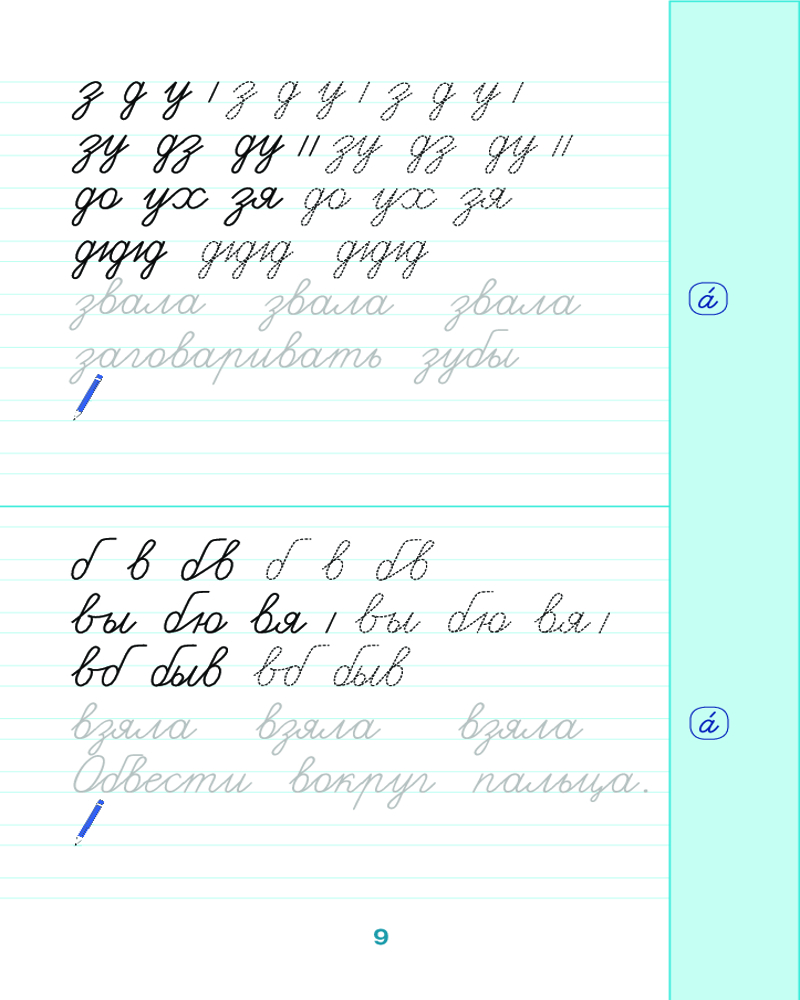 з д у / з д у / з д у /
зу дз ду // зу дз ду //
до ух зя до ух зя
звала звала звала
á
заговаривать зубы
б в бв б в бв
вы бю вя / вы бю вя /
вб быв вб быв
взяла взяла взяла
á
Обвести вокруг пальца.
9